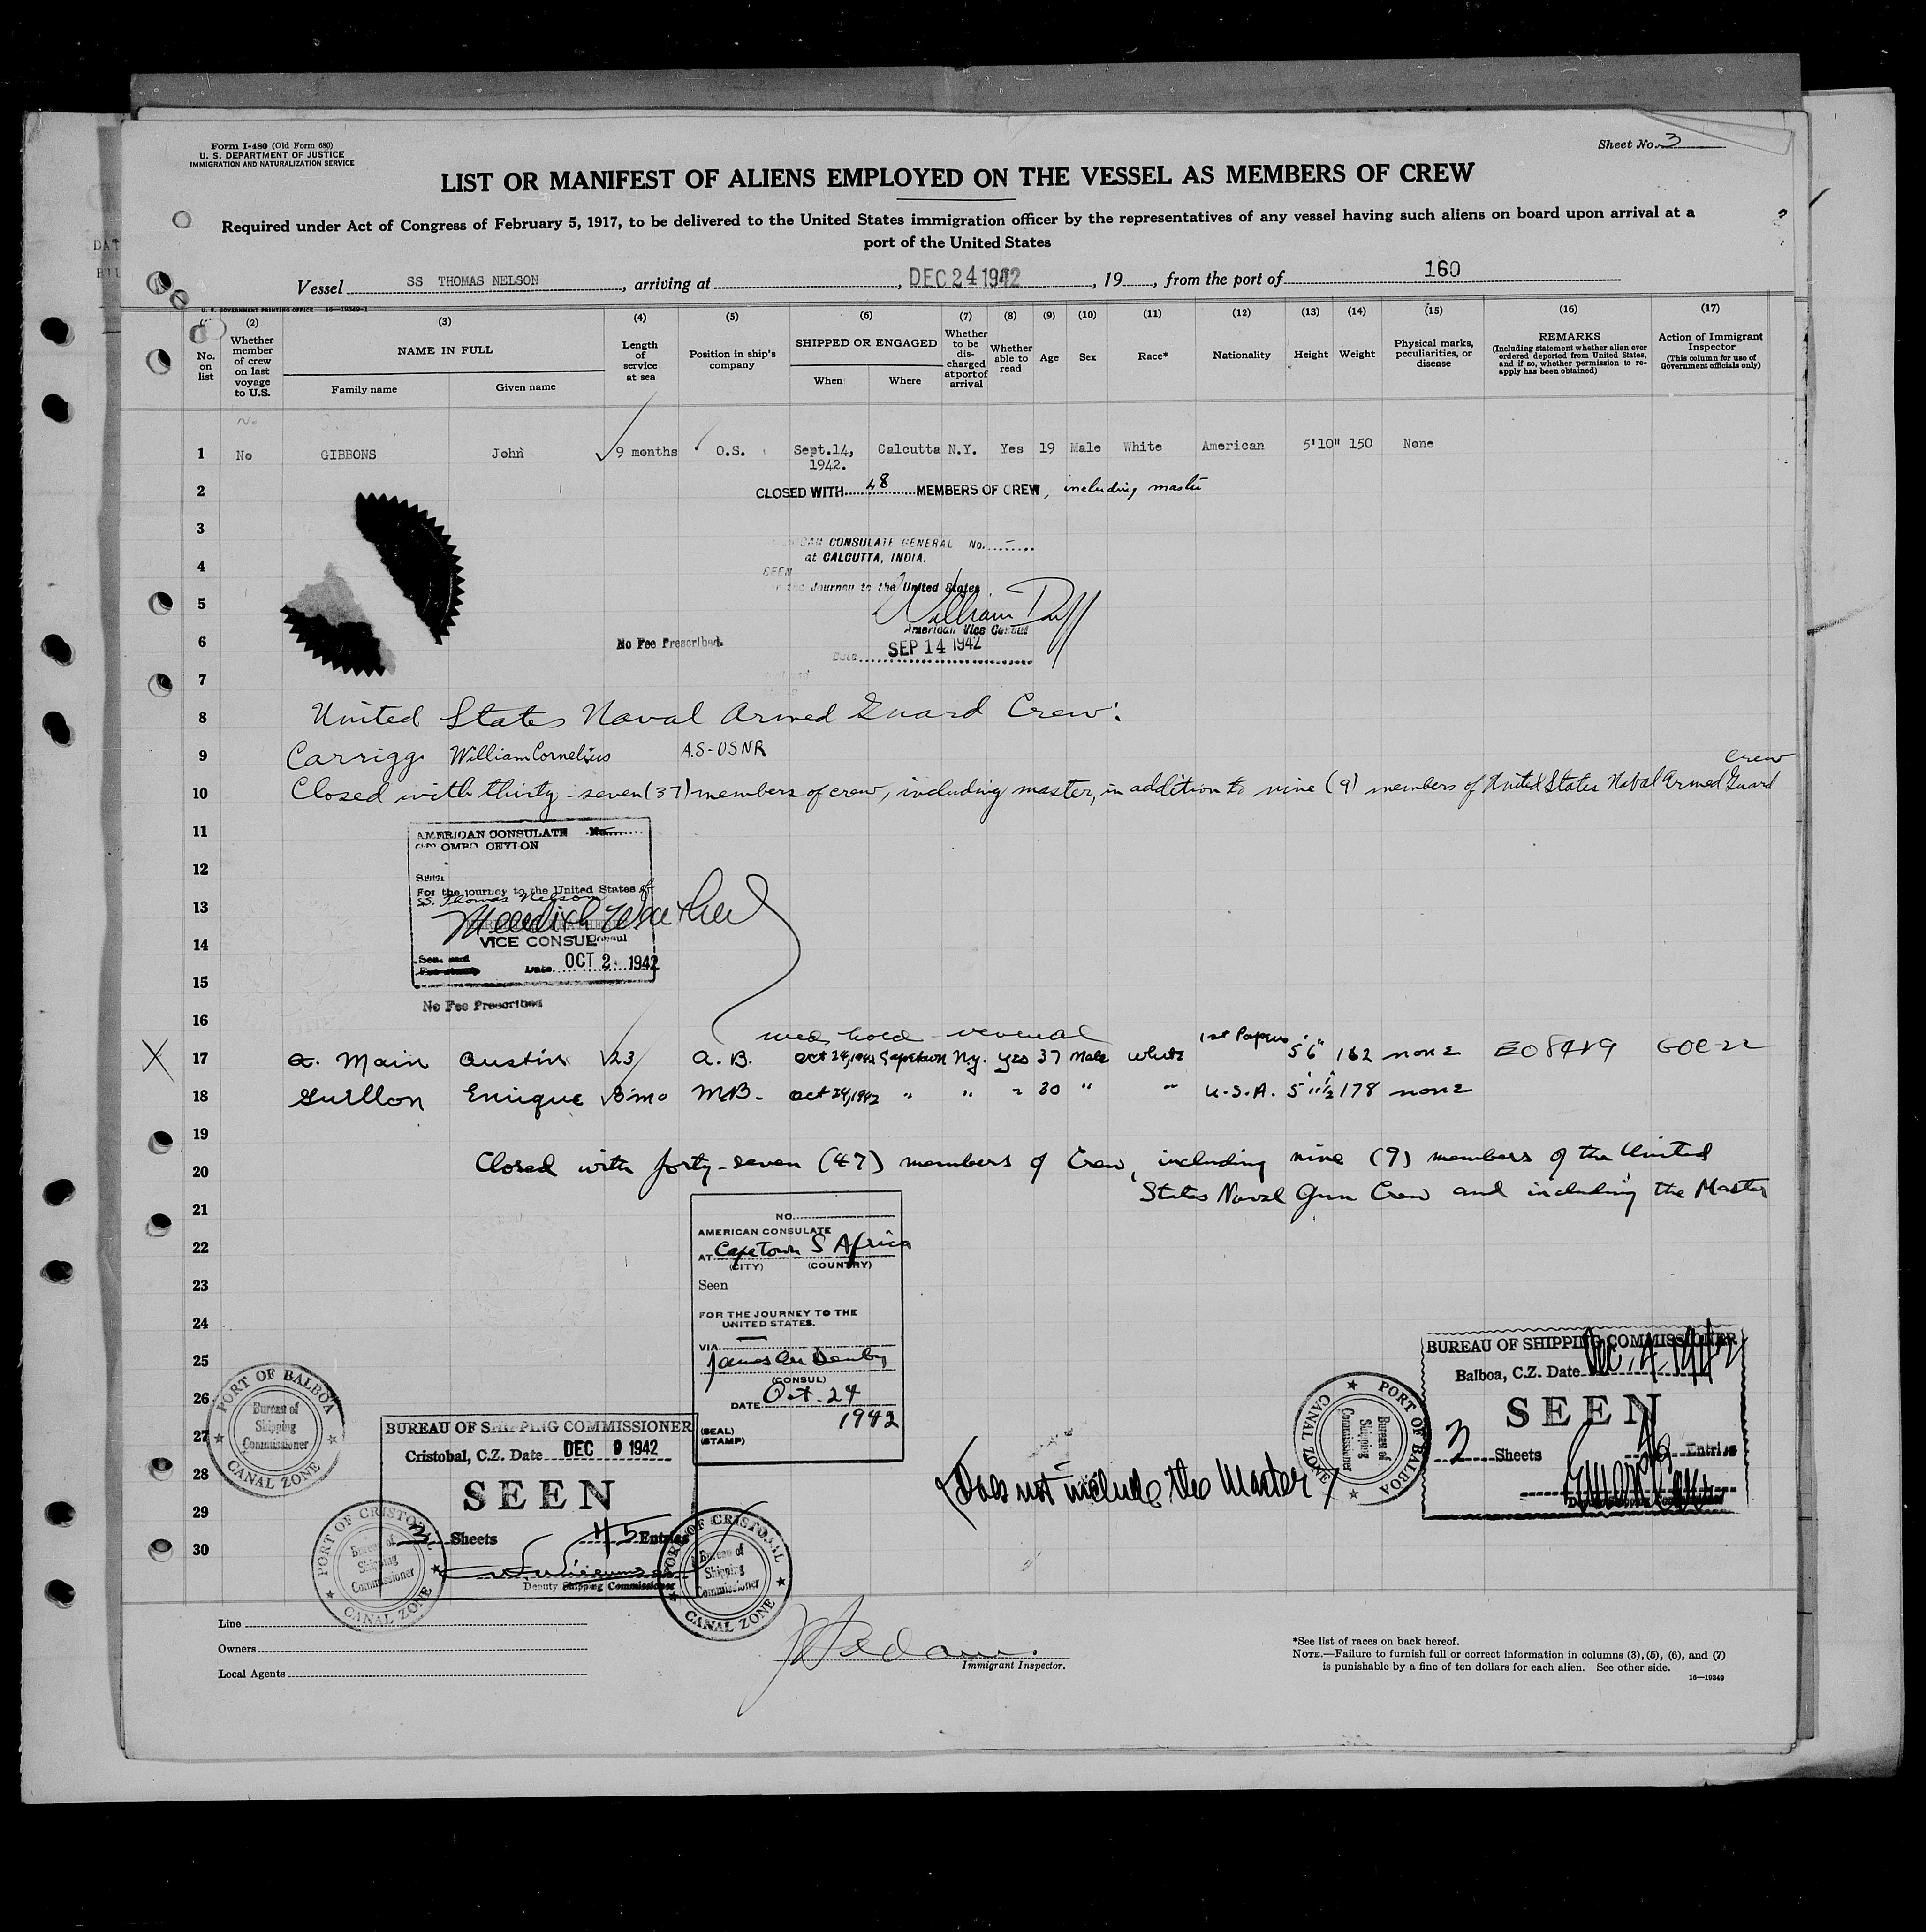 Form I-480 (Old Form 680)
U. S. DEPARTMENT OF JUSTICE
IMMIGRATION AND NATURALIZATION SERVICE
Sheet No. 3
LIST OR MANIFEST OF ALIENS EMPLOYED ON THE VESSEL AS MEMBERS OF CREW
Required under Act of Congress of February 5, 1917, to be delivered to the United States immigration officer by the representatives of any vessel having such aliens on board upon arrival at a
port of the United States
Vessel SS THOMAS NELSON, arriving at , DEC 24 1942, 19 , from the port of 160
U. S. GOVERNMENT PRINTING OFFICE 16—19349-1
(2) (3) (4) (5) (6) (7) (8) (9) (10) (11) (12) (13) (14) (15) (16) (17)
No. on list
Whether member of crew on last voyage to U.S.
NAME IN FULL
Family name Given name
Length of service at sea
Position in ship's company
SHIPPED OR ENGAGED
When Where
Whether to be discharged at port of arrival
Whether able to read
Age
Sex
Race*
Nationality
Height
Weight
Physical marks, peculiarities, or disease
REMARKS
(Including statement whether alien ever ordered deported from United States, and if so, whether permission to re-apply has been obtained)
Action of Immigrant Inspector
(This column for use of Government officials only)
No
1 No GIBBONS John 9 months O.S. Sept.14, 1942. Calcutta N.Y. Yes 19 Male White American 5'10" 150 None
2 CLOSED WITH 48 MEMBERS OF CREW, including master
3
CONSULATE GENERAL No. -
4 at CALCUTTA, INDIA.
SEEN
the Journey to the United States
5 William Duff
American Vice Consul
6 No Fee Prescribed.
Date SEP 14 1942
7
8 United States Naval Armed Guard Crew:
9 Carrigg William Cornelius A.S-USNR
10 Closed with thirty-seven (37) members of crew, including master, in addition to nine (9) members of United States Naval Armed Guard crew
11 AMERICAN CONSULATE No.
COLOMBO CEYLON
12
For the journey to the United States of
SS. Thomas Nelson
13
14 VICE CONSUL
Date OCT 2 1942
15
No Fee Prescribed
16
1st Papers
17 a. Main Austin 23 A. B. Oct 24, 1942 Capetown Ny. yes 37 Male White 5'6" 162 none
18 Guillon Enrique 8 mo M.B. Oct 24, 1942 " " " 30 " " U.S.A. 5'11½ 178 none
19
20 Closed with forty-seven (47) members of Crew, including nine (9) members of the United
States Naval Gun Crew and including the Master
21
NO.
AMERICAN CONSULATE
22 AT Cape Town S Africa
(CITY) (COUNTRY)
23 Seen
24 FOR THE JOURNEY TO THE
UNITED STATES.
VIA —
25 James
(CONSUL)
26 DATE Oct. 24
1942
(SEAL)
(STAMP)
27
28
29
30
PORT OF BALBOA
Bureau of Shipping Commissioner
CANAL ZONE
BUREAU OF SHIPPING COMMISSIONER
Cristobal, C.Z. Date DEC 9 1942
SEEN
3 Sheets 45 Entries
Deputy Shipping Commissioner
PORT OF CRISTOBAL
Bureau of Shipping Commissioner
CANAL ZONE
PORT OF CRISTOBAL
Bureau of Shipping Commissioner
CANAL ZONE
Does not include the Master
PORT OF BALBOA
Bureau of Shipping Commissioner
CANAL ZONE
BUREAU OF SHIPPING COMMISSIONER
Balboa, C.Z. Date Dec. 4, 1942
SEEN
3 Sheets 46 Entries
Line
Owners
Local Agents
Immigrant Inspector.
*See list of races on back hereof.
NOTE.—Failure to furnish full or correct information in columns (3), (5), (6), and (7)
is punishable by a fine of ten dollars for each alien. See other side.
16—19349